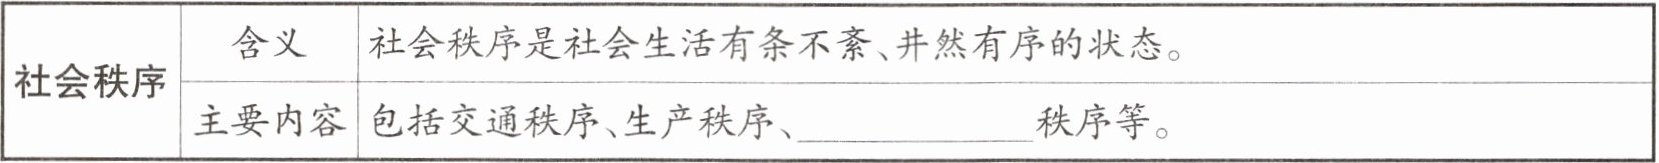 社会秩序
含义
社会秩序是社会生活有条不紊、井然有序的状态。
主要内容
包括交通秩序、生产秩序、____________秩序等。